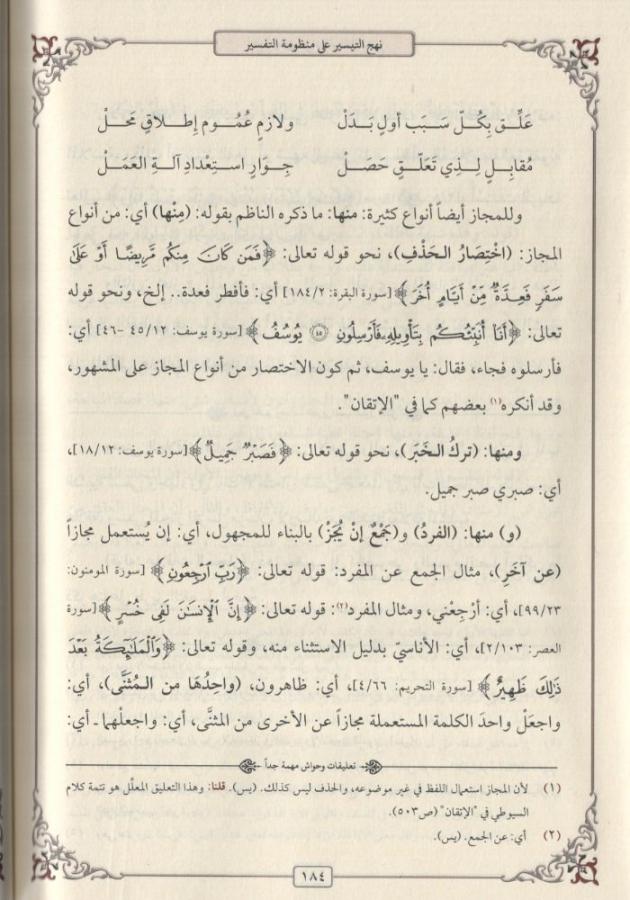 نهج التيسير على منظومة التفسير
عَلِّق بِكُلّ سَبَب أولٍ بَدَلْ ولازمٍ عُمُومٍ إطلاقٍ محَلْ
مُقابِلٍ لِذي تَعَلّقٍ حَصَل جِوَارٍ استِعْدادِ آلةِ العَمَلْ
وللمجاز أيضاً أنواع كثيرة: منها: ما ذكره الناظم بقوله: (مِنْها) أي: من أنواع
المجاز: (اخْتِصَارُ الـحَذْفِ)، نحو قوله تعالى: ﴿فَمَن كَانَ مِنكُم مَّرِيضًا أَوْ عَلَىٰ
سَفَرٍ فَعِدَّةٌ مِّنْ أَيَّامٍ أُخَرَ﴾ [سورة البقرة: ١٨٤/٢] أي: فأفطر فعدة.. إلخ، ونحو قوله
تعالى: ﴿أَنَا۠ أُنَبِّئُكُم بِتَأْوِيلِهِۦ فَأَرْسِلُونِ ۝٤٥ يُوسُفُ﴾ [سورة يوسف: ٤٥/١٢ -٤٦] أي:
فأرسلوه فجاء، فقال: يا يوسف، ثم كون الاختصار من أنواع المجاز على المشهور،
وقد أنكره(١) بعضهم كما في "الإتقان".
ومنها: (تركُ الـخَبَر)، نحو قوله تعالى: ﴿فَصَبْرٌ جَمِيلٌ﴾ [سورة يوسف: ١٨/١٢]،
أي: صبري صبر جميل.
(و) منها: (الفردُ) و(جَمْعٌ إنْ يُجَزْ) بالبناء للمجهول، أي: إن يُستعمل مجازاً
(عن آخَرِ)، مثال الجمع عن المفرد: قوله تعالى: ﴿رَبِّ ٱرْجِعُونِ﴾ [سورة المومنون:
٩٩/٢٣]، أي: أرْجِعْني، ومثال المفرد(٢): قوله تعالى: ﴿إِنَّ ٱلْإِنسَٰنَ لَفِى خُسْرٍ﴾ [سورة
العصر: ٢/١٠٣]، أي: الأناسيّ بدليل الاستثناء منه، وقوله تعالى: ﴿وَٱلْمَلَٰٓئِكَةُ بَعْدَ
ذَٰلِكَ ظَهِيرٌ﴾ [سورة التحريم: ٤/٦٦]، أي: ظاهرون، (واحِدُهَا من الـمُثَنَّى)، أي:
واجعَلْ واحدَ الكلمة المستعملة مجازاً عن الأخرى من المثنَّى، أي: واجعلْهما - أي:
تعليقات وحواش مهمة جداً
(١) لأن المجاز استعمال اللفظ في غير موضوعه، والحذف ليس كذلك. (يس). قلنا: وهذا التعليق المعلّل هو تتمة كلام
السيوطي في "الإتقان" (ص٥٠٣).
(٢) أي: عن الجمع. (يس).
١٨٤